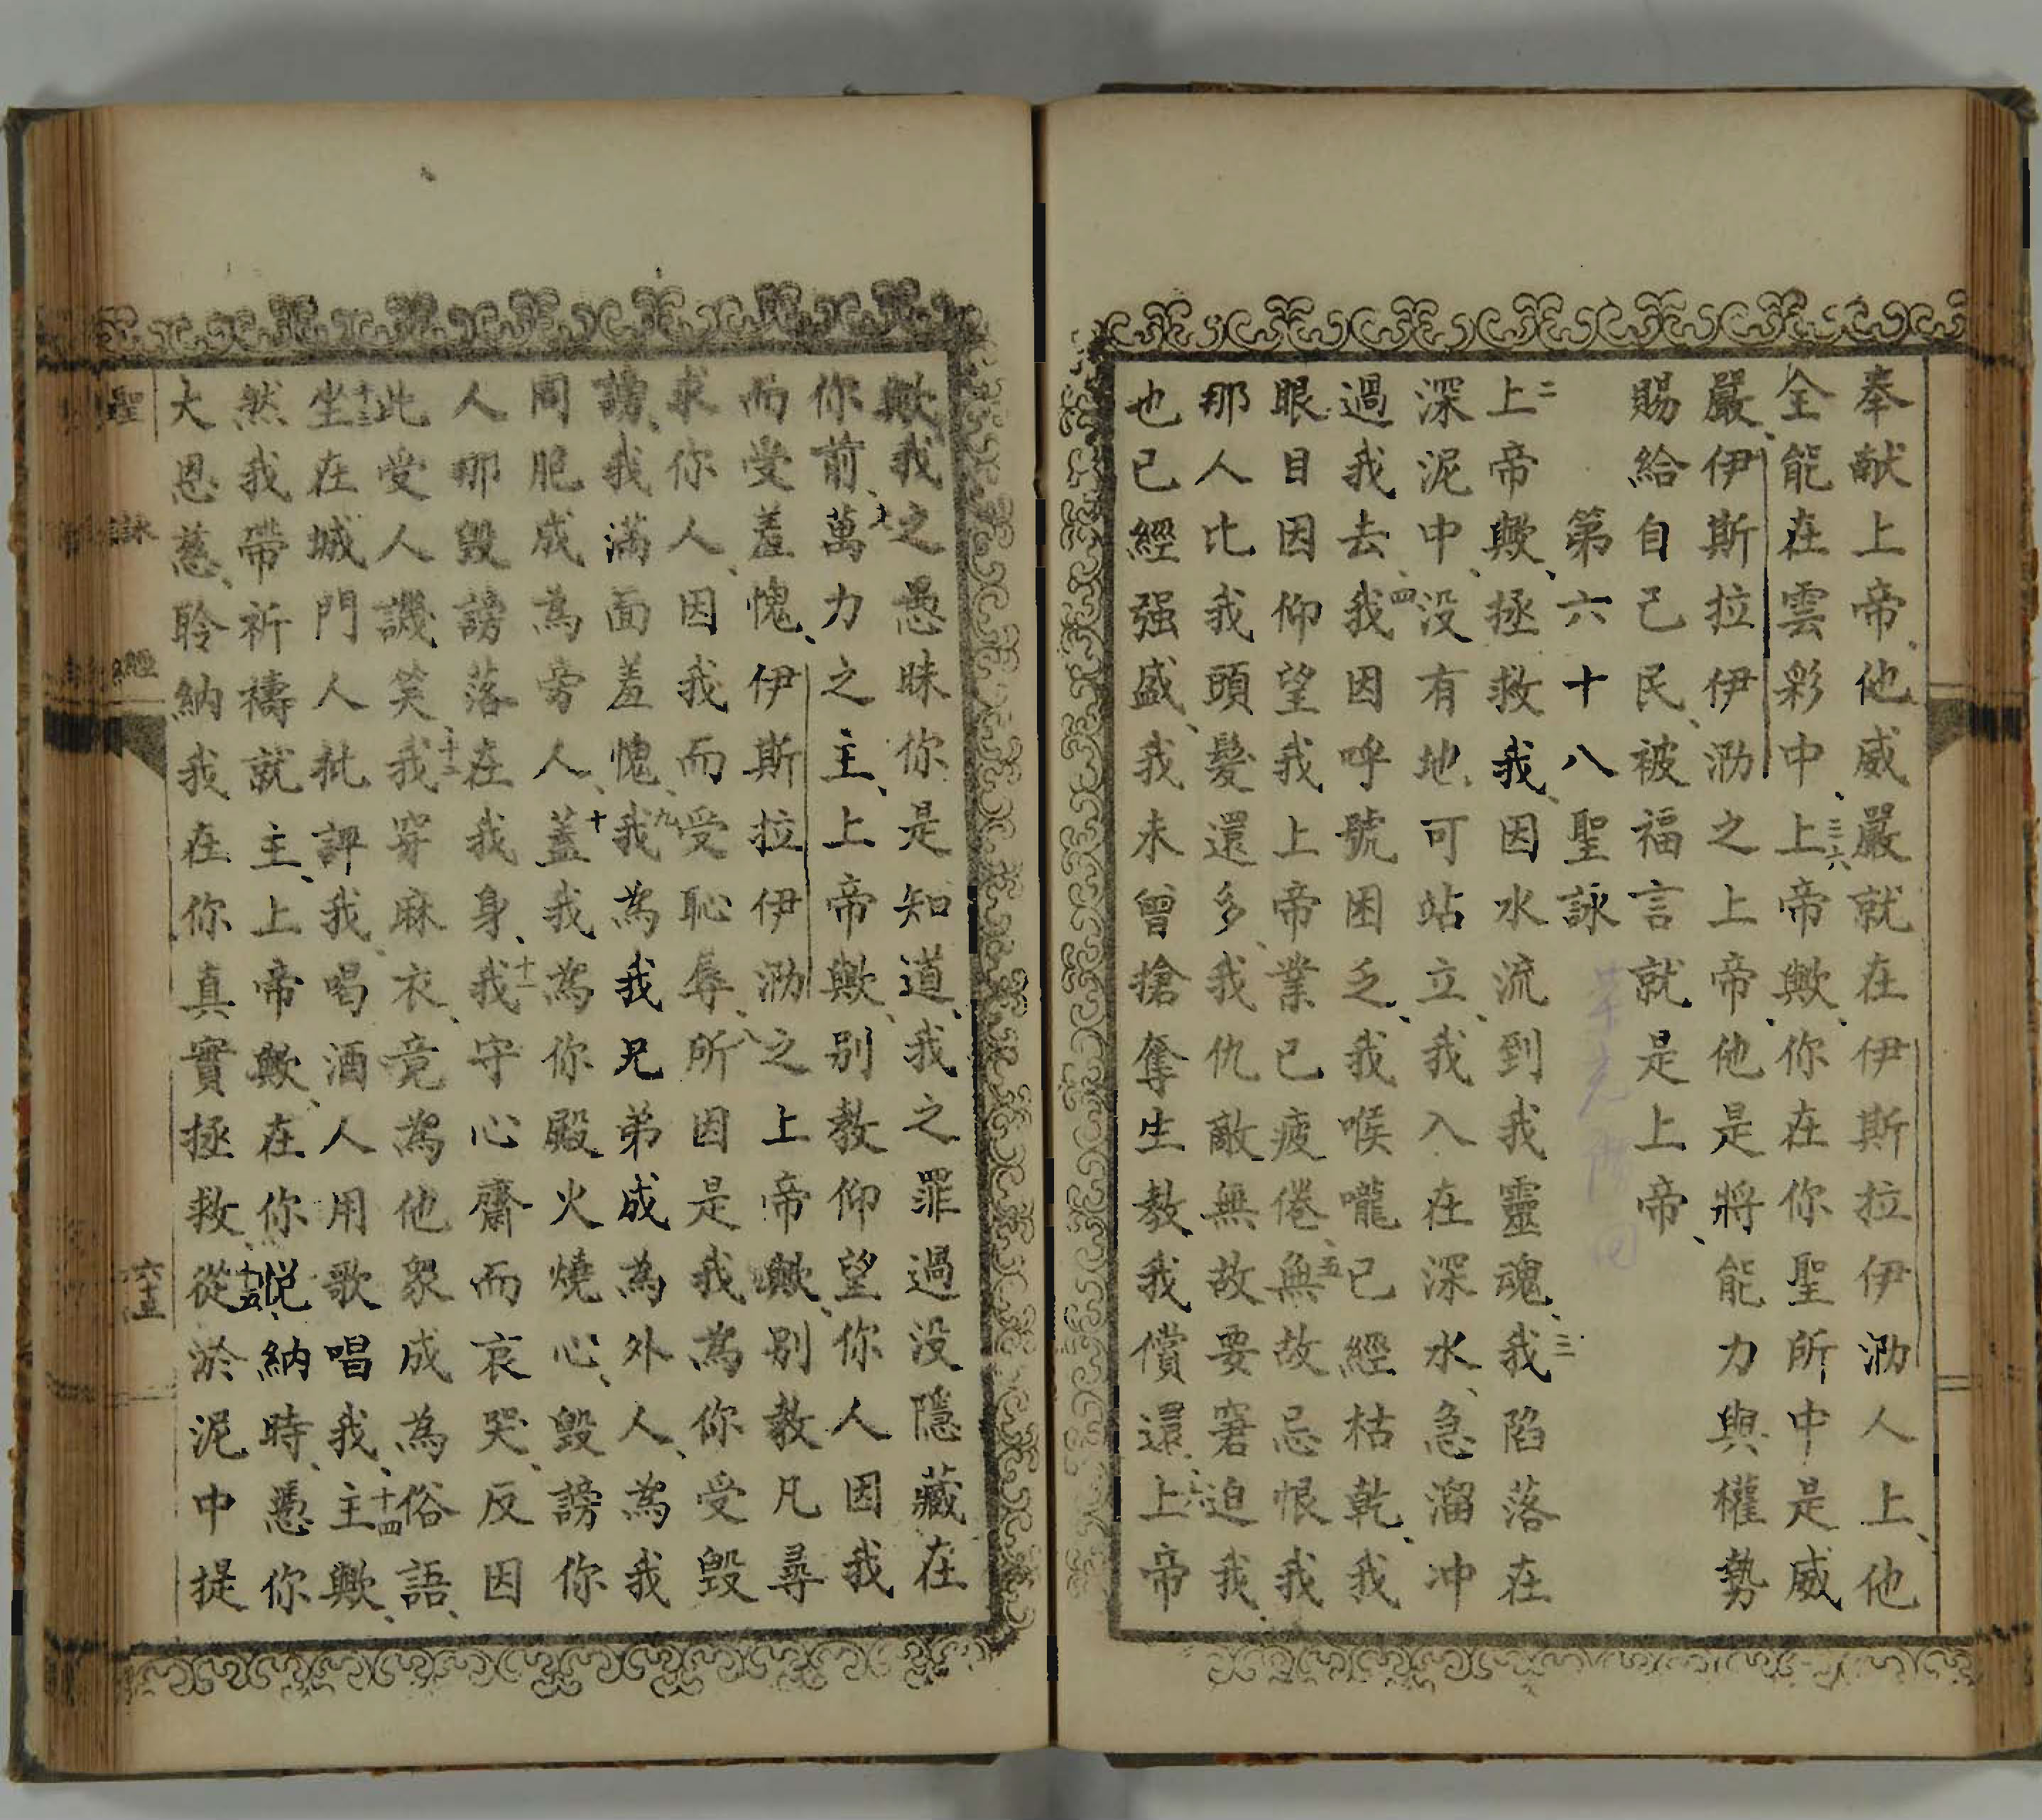 奉献上帝、他威嚴就在伊斯拉伊泐人上、他
全能在雲彩中、三六上帝歟、你在你聖所中是威
嚴、伊斯拉伊泐之上帝、他是將能力與權勢
賜給自己民、被福言就是上帝、
第六十八聖詠
二上帝歟、拯救我、因水流到我靈魂、三我陷落在
深泥中、没有地可站立、我入在深水、急溜冲
過我去、四我因呼號困乏、我喉嚨已經枯乾、我
眼目因仰望我上帝業已疲倦、五無故忌恨我
那人比我頭髮還多、我仇敵無故要窘迫我、
也已經强盛、我未曾搶奪生教我償還、六上帝
歟、我之愚昧你是知道、我之罪過没隱藏在
你前、七萬力之主、上帝歟、别教仰望你人因我
而受羞愧、伊斯拉伊泐之上帝歟、别教凡尋
求你人、因我而受恥辱、八所因是我為你受毀
謗、我滿面羞愧、九我為我兄弟成為外人、為我
同胞成為旁人、十蓋我為你殿火燒心、毀謗你
人那毀謗落在我身、十一我守心齋而哀哭、反因
此受人譏笑、十二我穿麻衣、竟為他衆成為俗語、
十三坐在城門人批評我、喝酒人用歌唱我、十四主歟、
然我帶祈禱就主、上帝歟、在你悦納時、憑你
大恩慈、聆納我在你真實拯救、十五從淤泥中提
聖詠經
六十五